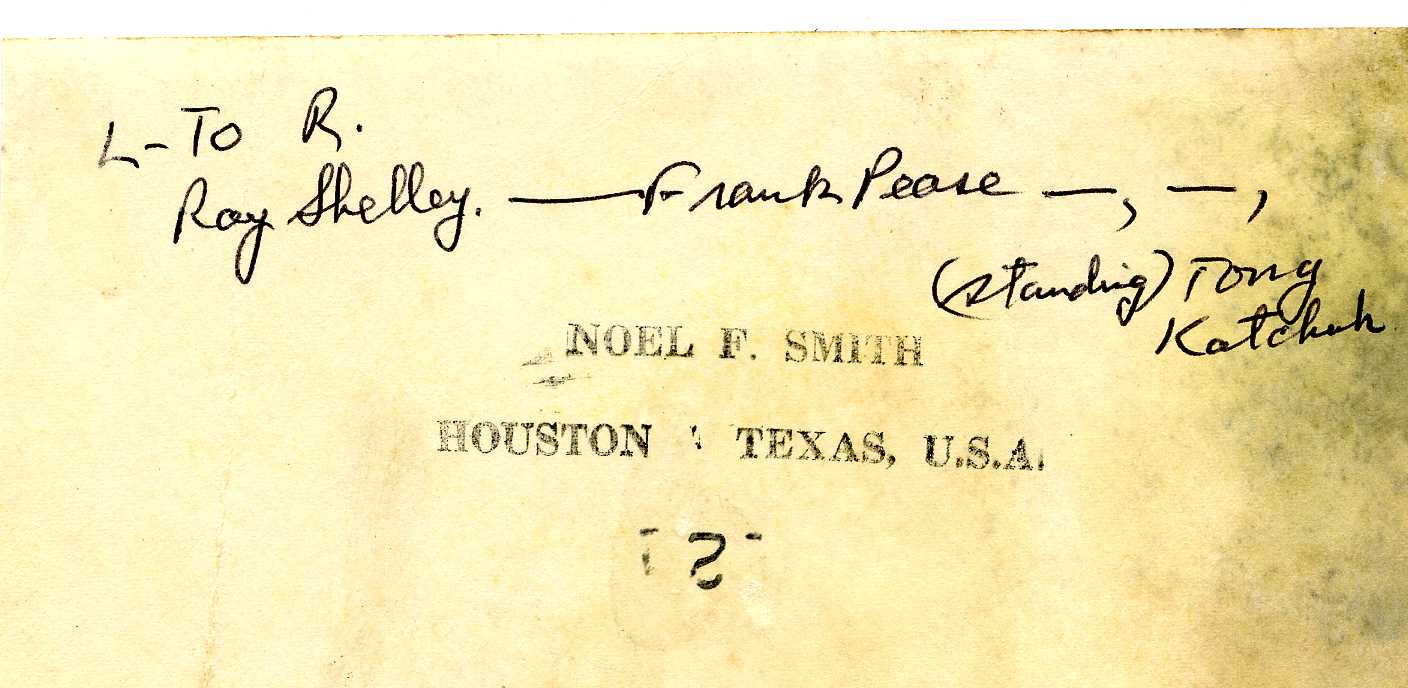 L- To R.
Ray Shelley. — Frank Pease —, —,
(standing) Tony
Katchuk
NOEL F. SMITH
HOUSTON TEXAS, U.S.A.